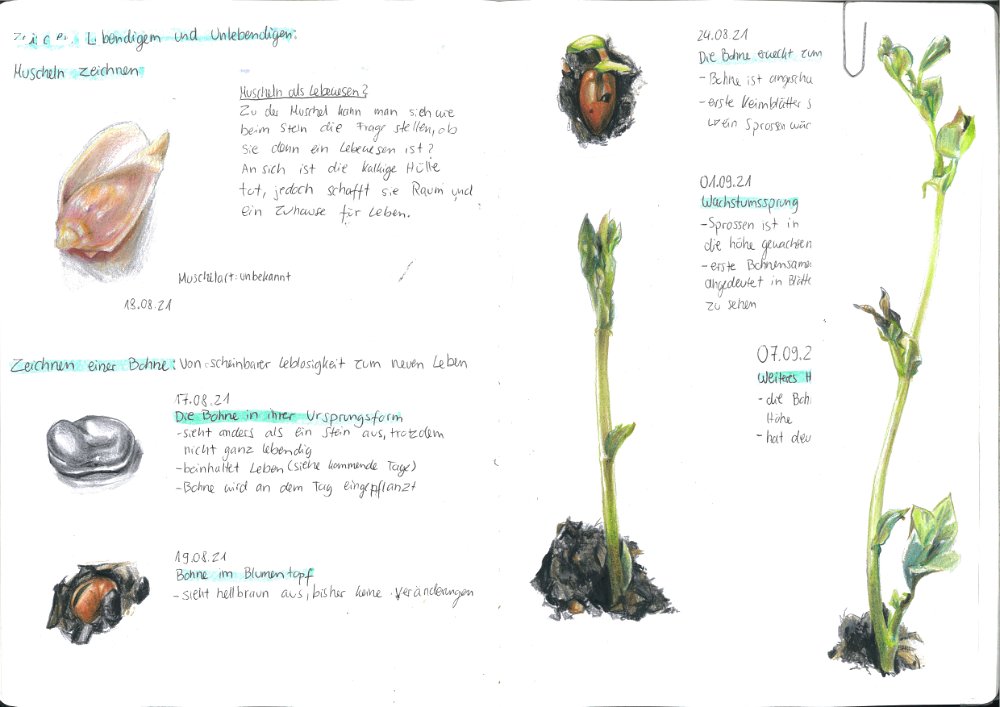 Lebendigem und Unlebendigen:
Muscheln zeichnen
Muscheln als Lebewesen?
Zu der Muschel kann man sich wie
beim Stein die Frage stellen, ob
sie denn ein Lebewesen ist?
An sich ist die kalkige Hülle
tot, jedoch schafft sie Raum und
ein Zuhause für Leben.
Muschelart: unbekannt
18.08.21
Zeichnen einer Bohne: Von scheinbarer Leblosigkeit zum neuen Leben
17.08.21
Die Bohne in ihrer Ursprungsform
-sieht anders als ein Stein aus, trotzdem
nicht ganz lebendig
-beinhaltet Leben (siehe kommende Tage)
-Bohne wird an dem Tag eingepflanzt
19.08.21
Bohne im Blumentopf
-sieht hellbraun aus, bisher keine Veränderungen
24.08.21
Die Bohne erweckt zum
-Bohne ist angeschw
-erste Keimblätter s
ein Sprossen wär
01.09.21
Wachstumssprung
-Sprossen ist in
die höhe gewachsen
-erste Bohnensame
angedeutet in Blätte
zu sehen
07.09.2
Weiteres H
- die Boh
Höhe
- hat deu